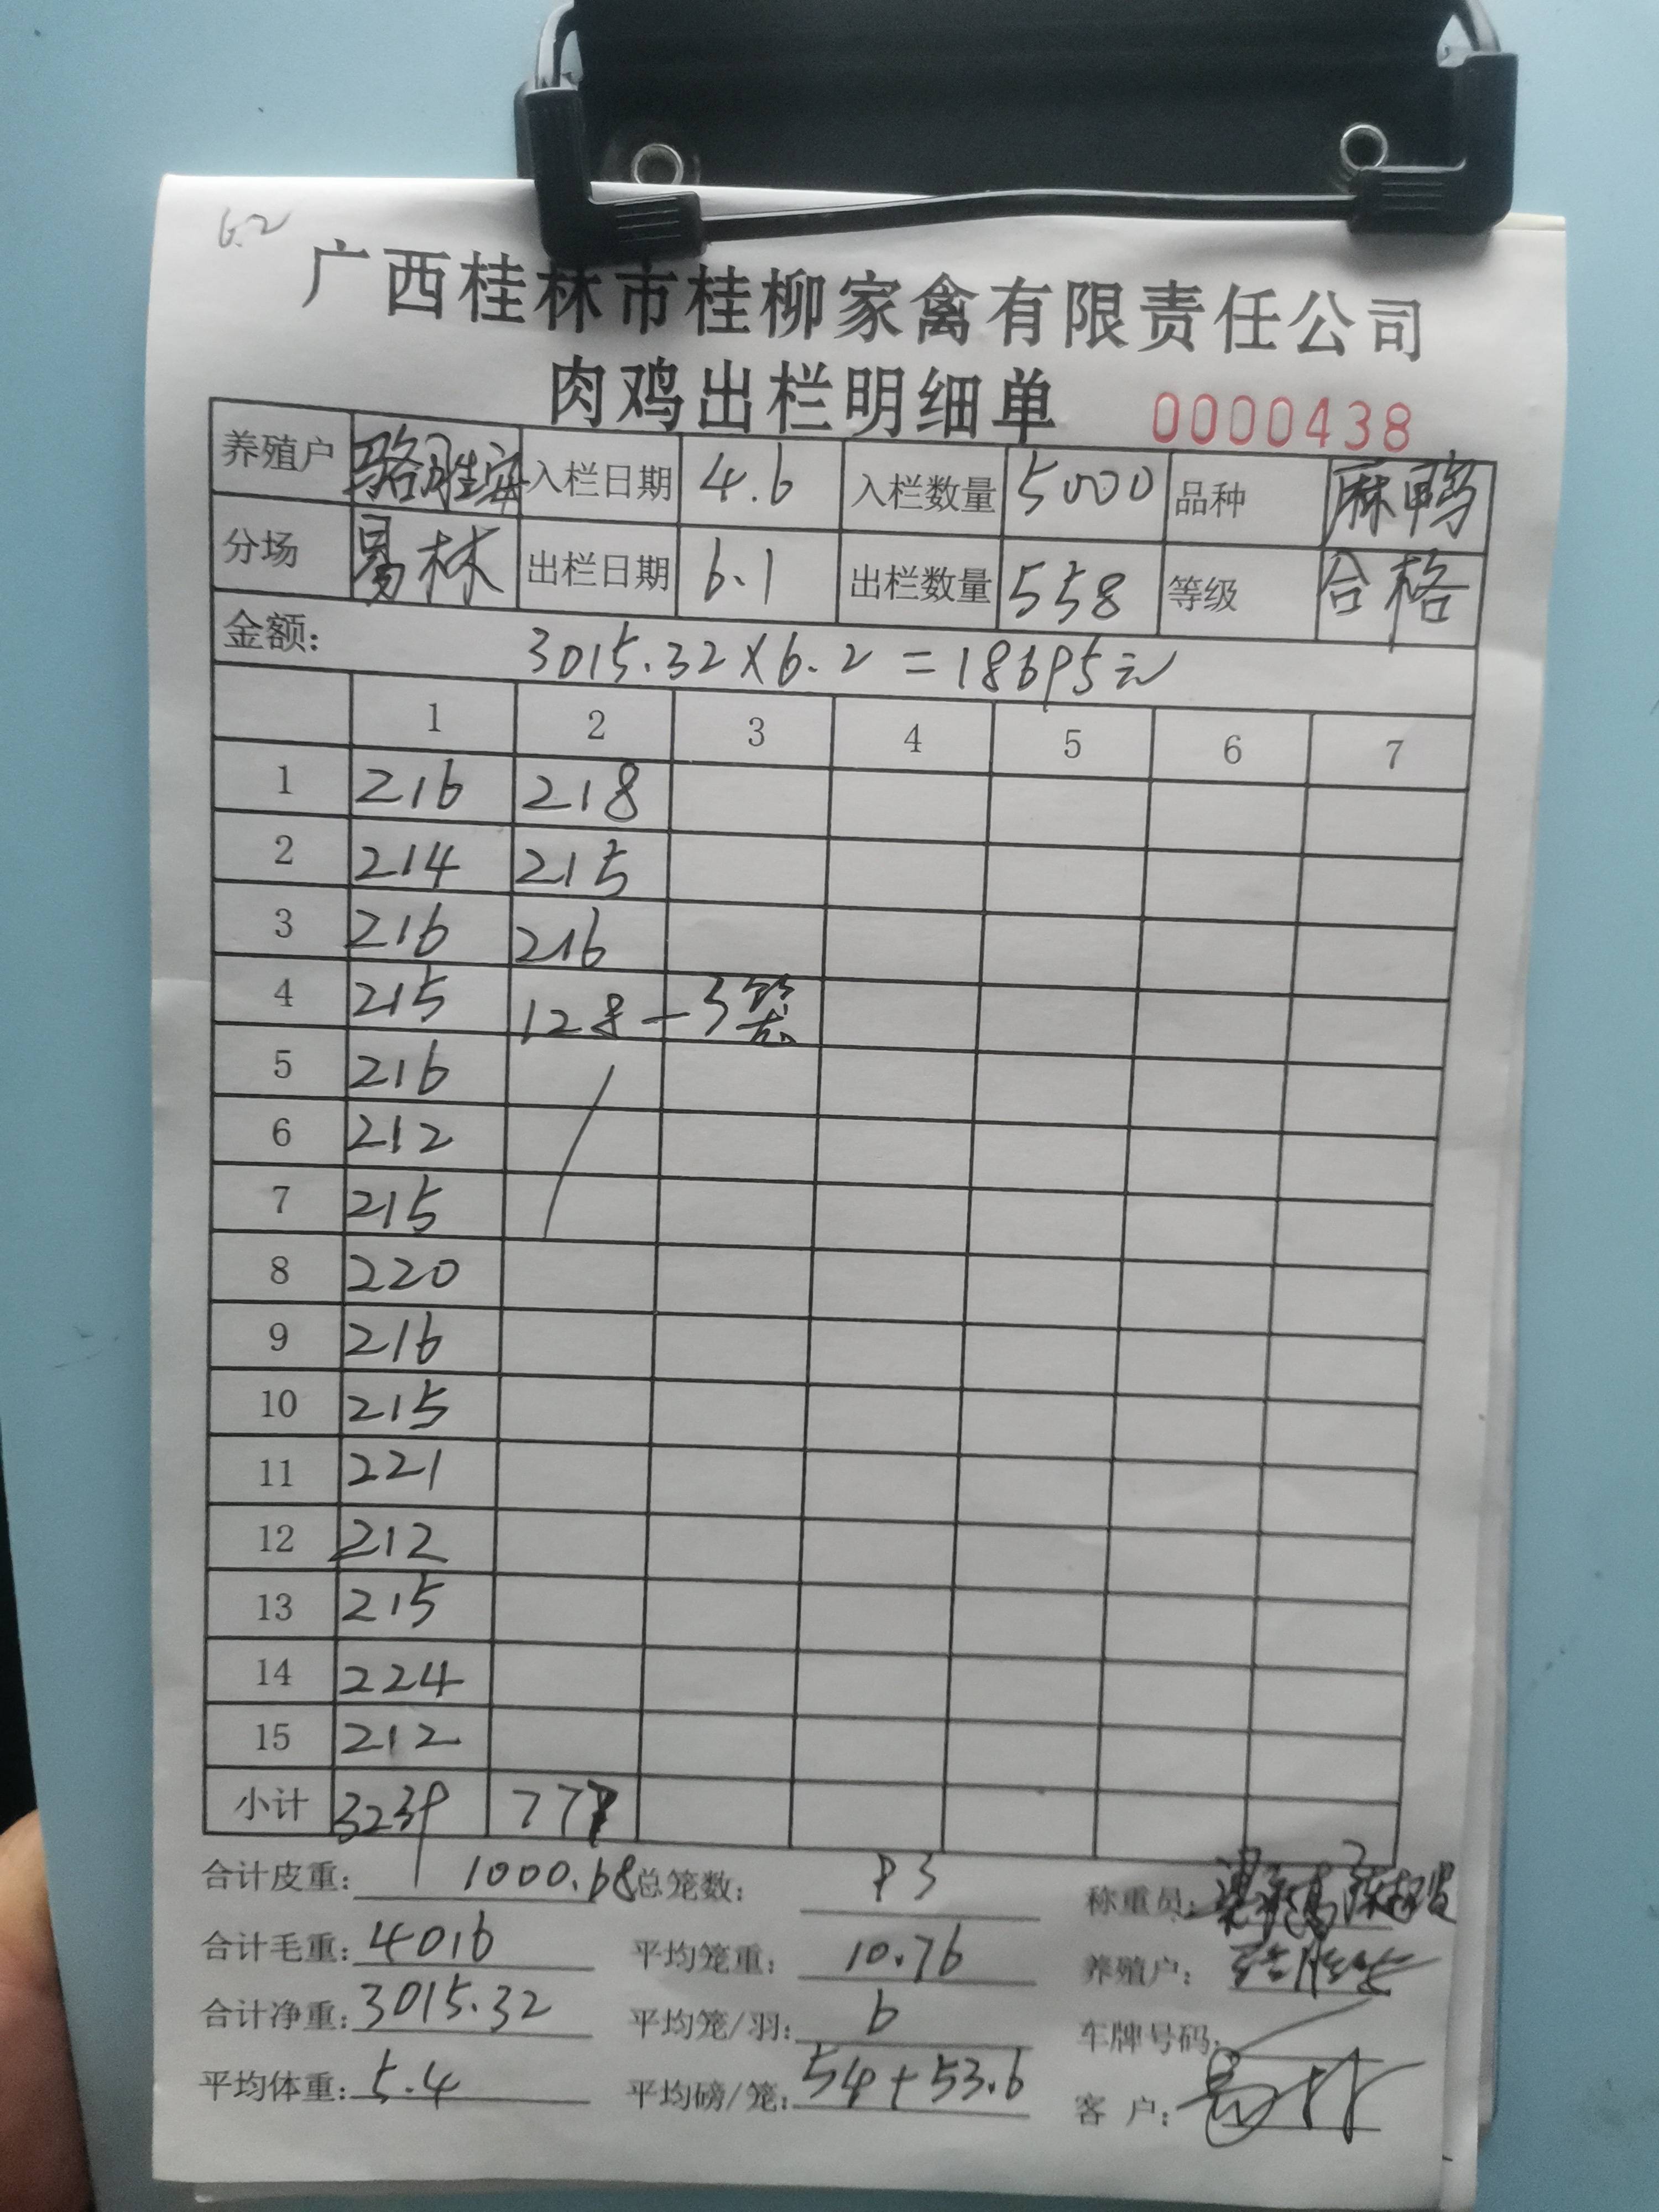 6.2
广西桂林市桂柳家禽有限责任公司
肉鸡出栏明细单 0000438
养殖户 骆胜安 入栏日期 4.6 入栏数量 5000 品种 麻鸭
分场 易林 出栏日期 6.1 出栏数量 558 等级 合格
金额: 3015.32×6.2=18695元
1 2 3 4 5 6 7
1 216 218
2 214 215
3 216 216
4 215 128-3笼
5 216
6 212
7 215
8 220
9 216
10 215
11 221
12 212
13 215
14 224
15 212
小计 3239 777
合计皮重: 1000.68 总笼数: 93 称重员:
合计毛重: 4016 平均笼重: 10.76 养殖户: 骆胜安
合计净重: 3015.32 平均笼/羽: 6 车牌号码:
平均体重: 5.4 平均磅/笼: 54+53.6 客户: 易林